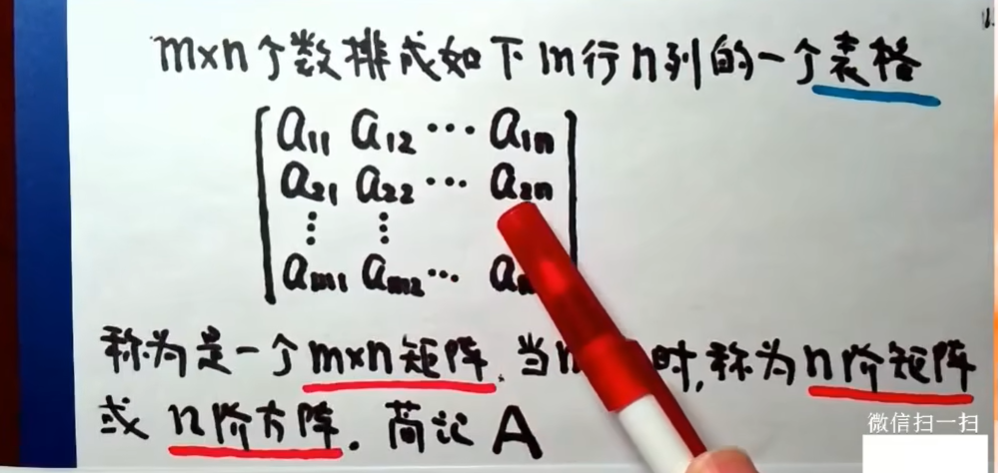 m×n个数排成如下m行n列的一个表格
a₁₁ a₁₂ ⋯ a₁ₙ
a₂₁ a₂₂ ⋯ a₂ₙ
⋮ ⋮
aₘ₁ aₘ₂ ⋯ a
称为是一个m×n矩阵.当 时,称为n阶矩阵
或n阶方阵.简记A
微信扫一扫